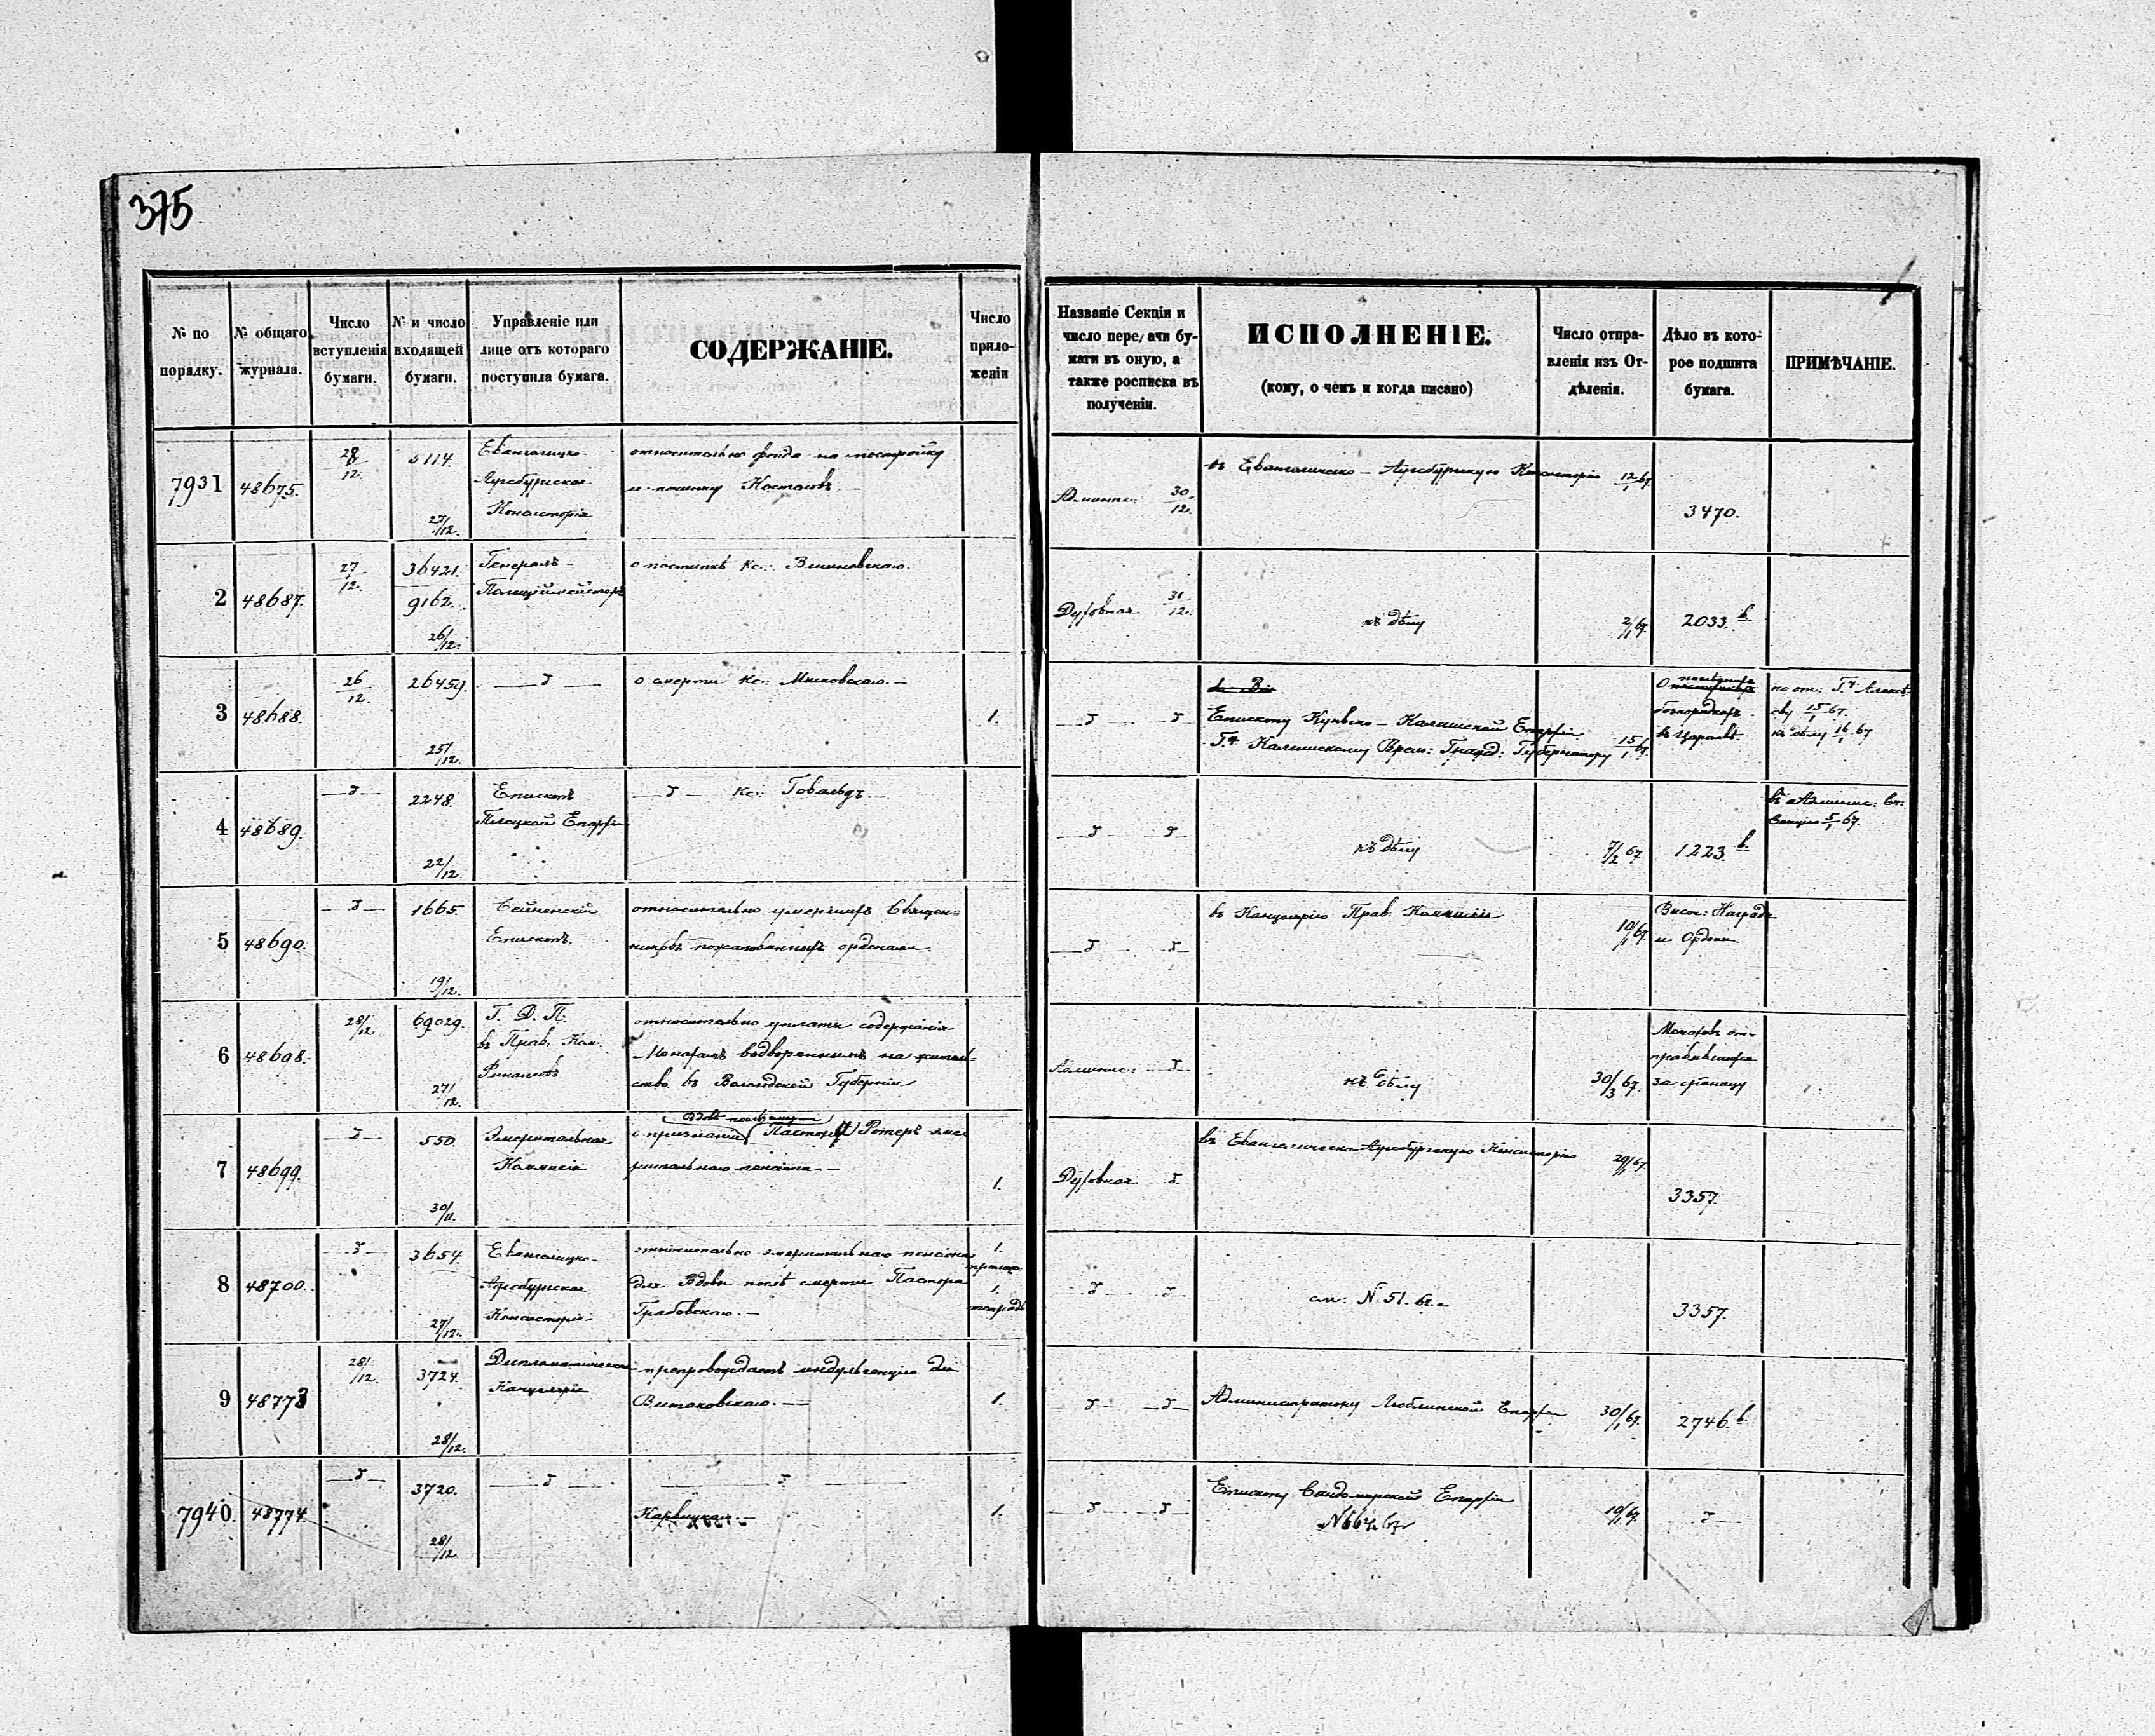 375
№ по порядку.
№ общаго журнала.
Число вступленія бумаги.
№ и число входящей бумаги.
Управленіе или лице отъ котораго поступила бумага.
СОДЕРЖАНІЕ.
Число приложеніи
Названіе Секціи и число передачи бумаги въ оную, а также росписка въ полученіи.
ИСПОЛНЕНІЕ.
(кому, о чемъ и когда писано)
Число отправленія изъ Отдѣленія.
Дѣло въ которое подшита бумага.
ПРИМѢЧАНІЕ.
7931 48675. 28/12. 5114. 27/12.
Евангелицко
Аугсбургская
Консисторія
относительно фонда на постройку
и починку Костеловъ
30/12.
въ Евангелическо-Аугсбургскую Консисторію 12/1 67.
3470.
2 48687. 27/12. 36421. 9162. 26/12.
Генералъ-
Полиціймейстеръ
о поступкѣ Кс:
Духовная
къ дѣлу 2/1 67. 2033. b
3 48688. 26/12. 26459. 25/12.
о смерти Кс: Мысковскаго. 1.
Епископу Куявско-Калишской Епархіи
Калишскому Врем: Гражд: Губернатору 15/1 67.
безпорядкахъ
въ Царствѣ.
15/1 67.
къ дѣлу 16/1 67
4 48689. 2248. 22/12.
Епископъ
Плоцкой Епархіи
Кс:
къ дѣлу 7/2 67 1223. b
въ Админис:
Секцію 5/1 67.
5 48690. 1665. 19/12.
Сейненскій
Епископъ.
относительно умершихъ Священ-
никовъ пожалованныхъ орденами
въ Канцелярію Прав. Коммисіи
10/1 67.
Высоч: Награды
и Ордены
6 48698. 28/12 69029. 27/12.
Г. Д. П.
въ Прав. Ком.
Финансовъ
относительно уплаты содержанія
Монахамъ водвореннымъ на житель-
ство въ Вологодской Губерніи
къ дѣлу 30/3 67.
Монаховъ от-
правившихся
за границу
7 48699. 550. 30/11.
Эмеритальная
Коммисія
о признаніи Вдовѣ послѣ смерти Пастора Ротеръ эме-
ритальнаго пенсіона
1.
Духовная
въ Евангелическо-Аугсбургскую Консисторію 29/1 67.
3357.
8 48700. 3654. 27/12.
Евангелицко-
Аугсбургская
Консисторія
относительно эмеритальнаго пенсіона
для Вдовы послѣ смерти Пастора
Грабовскаго.
1.
1.
см: N. 51.
3357.
9 48773 28/12. 3724. 28/12.
Дипломатическая
Канцелярія
препровождаетъ индульгенцію для
Витаковскаго.
1.
Администратору Люблинской Епархіи 30/1 67. 2746. b
7940. 48774. 3720. 28/12
Карвицкая.
1.
Епископу Сандомирской Епархіи
10/1 67.